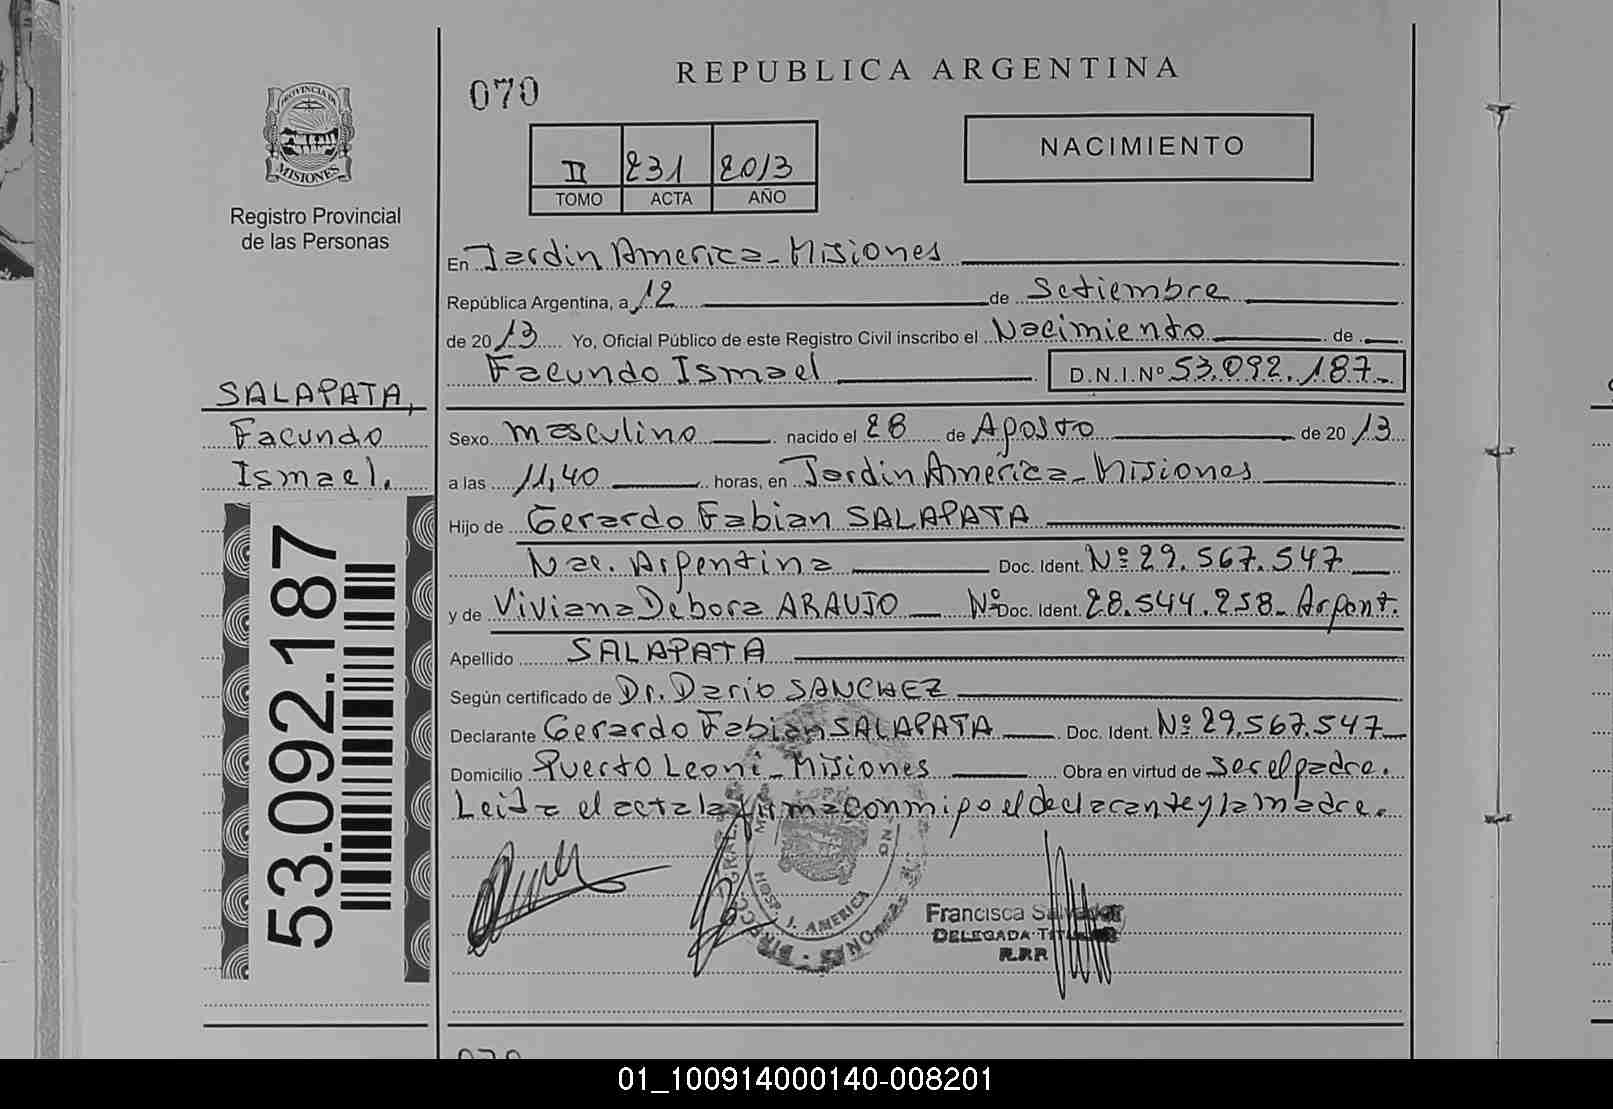 070
REPUBLICA ARGENTINA
PROVINCIA DE
MISIONES
Registro Provincial
de las Personas
II 231 2013
TOMO ACTA AÑO
NACIMIENTO
En Jardin America - Misiones
República Argentina, a 12 de Setiembre
de 2013 Yo, Oficial Público de este Registro Civil inscribo el Nacimiento de
Facundo Ismael D.N.I.Nº 53.092.187-
SALAPATA,
Facundo
Ismael.
Sexo masculino nacido el 28 de Agosto de 2013
a las 11,40 horas, en Jardin America - Misiones
Hijo de Gerardo Fabian SALAPATA
Nac. Argentina Doc. Ident. Nº 29.567.547
y de Viviana Debora ARAUJO Nº Doc. Ident. 28.544.258- Argent.
Apellido SALAPATA
Según certificado de Dr. Dario SANCHEZ
Declarante Gerardo Fabian SALAPATA Doc. Ident. Nº 29.567.547
Domicilio Puerto Leoni - Misiones Obra en virtud de ser el padre.
Leida el acta la firma conmigo el declarante y la madre.
53.092.187
HOSP. J. AMERICA
Francisca Salvador
DELEGADA TITULAR
R.P.P.
070
01_100914000140-008201